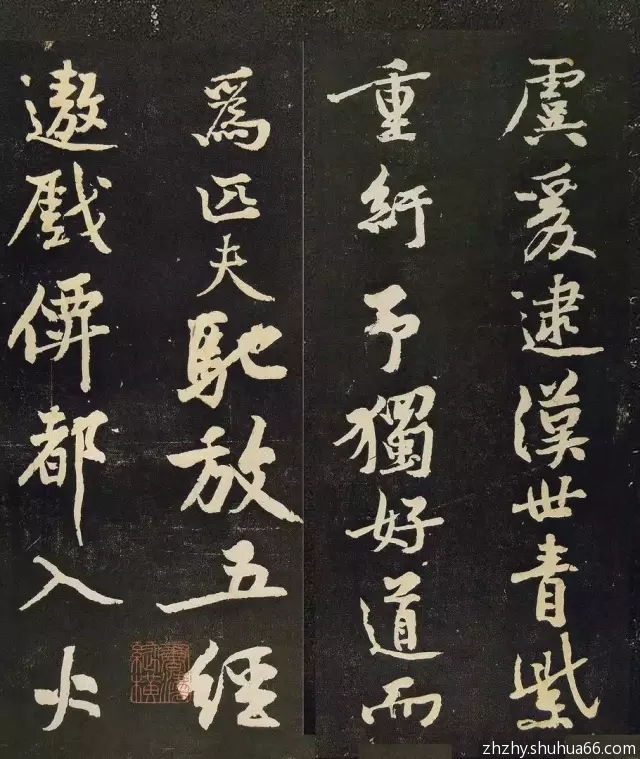 虞爰逮漢世青紫
重紆予獨好道而
爲匹夫馳放五經
遨戲僊都入火
zhzhy.shuhua66.com